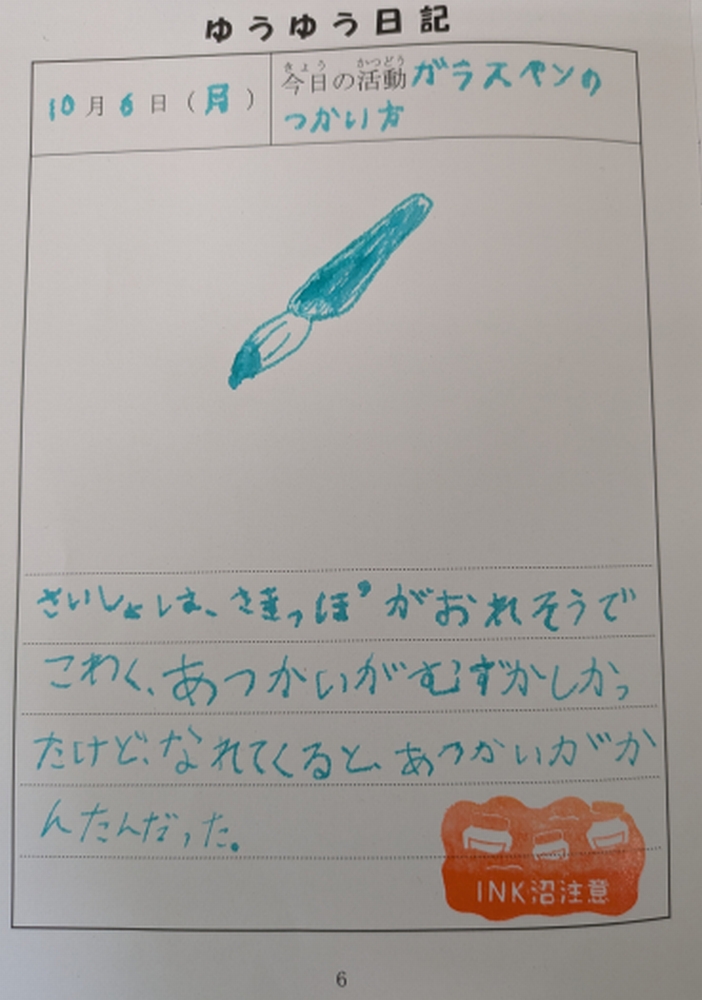 ゆうゆう日記
10月6日(月)
きょう かつどう
今日の活動ガラスペンの
つかい方
さいしょは、さきっぽがおれそうで
こわく、あつかいがむずかしかっ
たけど、なれてくると、あつかいがか
んたんだった。
INK沼注意
6